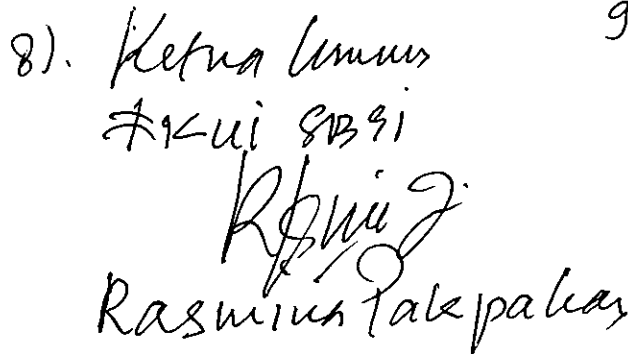 8). Ketua Umum
FKUI SBSI
Rasmina Pakpahan
9